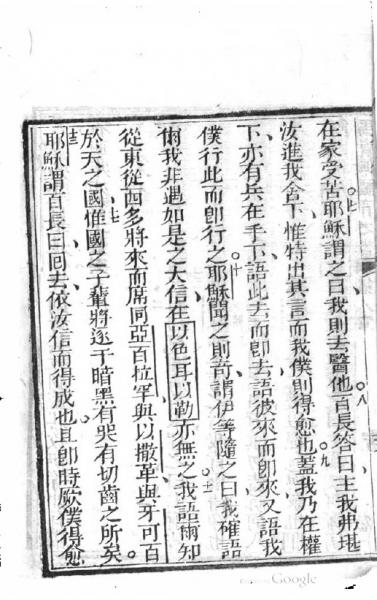 在家受苦耶穌謂之曰我則去醫他百長答曰主我弗堪
汝進我舍下惟特出其言而我僕則得愈也蓋我乃在權
下亦有兵在手下語此去而卽去語彼來而卽來又語我
僕行此而卽行之耶穌聞之則奇謂伊等隨之曰我確語
爾我非遇如是之大信在以色耳以勒亦無之我語爾知
從東從西多將來而席同亞百拉罕與以撒革與牙可百
於天之國惟國之子輩將逐于暗黑有哭有切齒之所矣
耶穌謂百長曰回去依汝信而得成也且卽時厥僕得愈
七
八
九
十
十一
十二
十三
Google